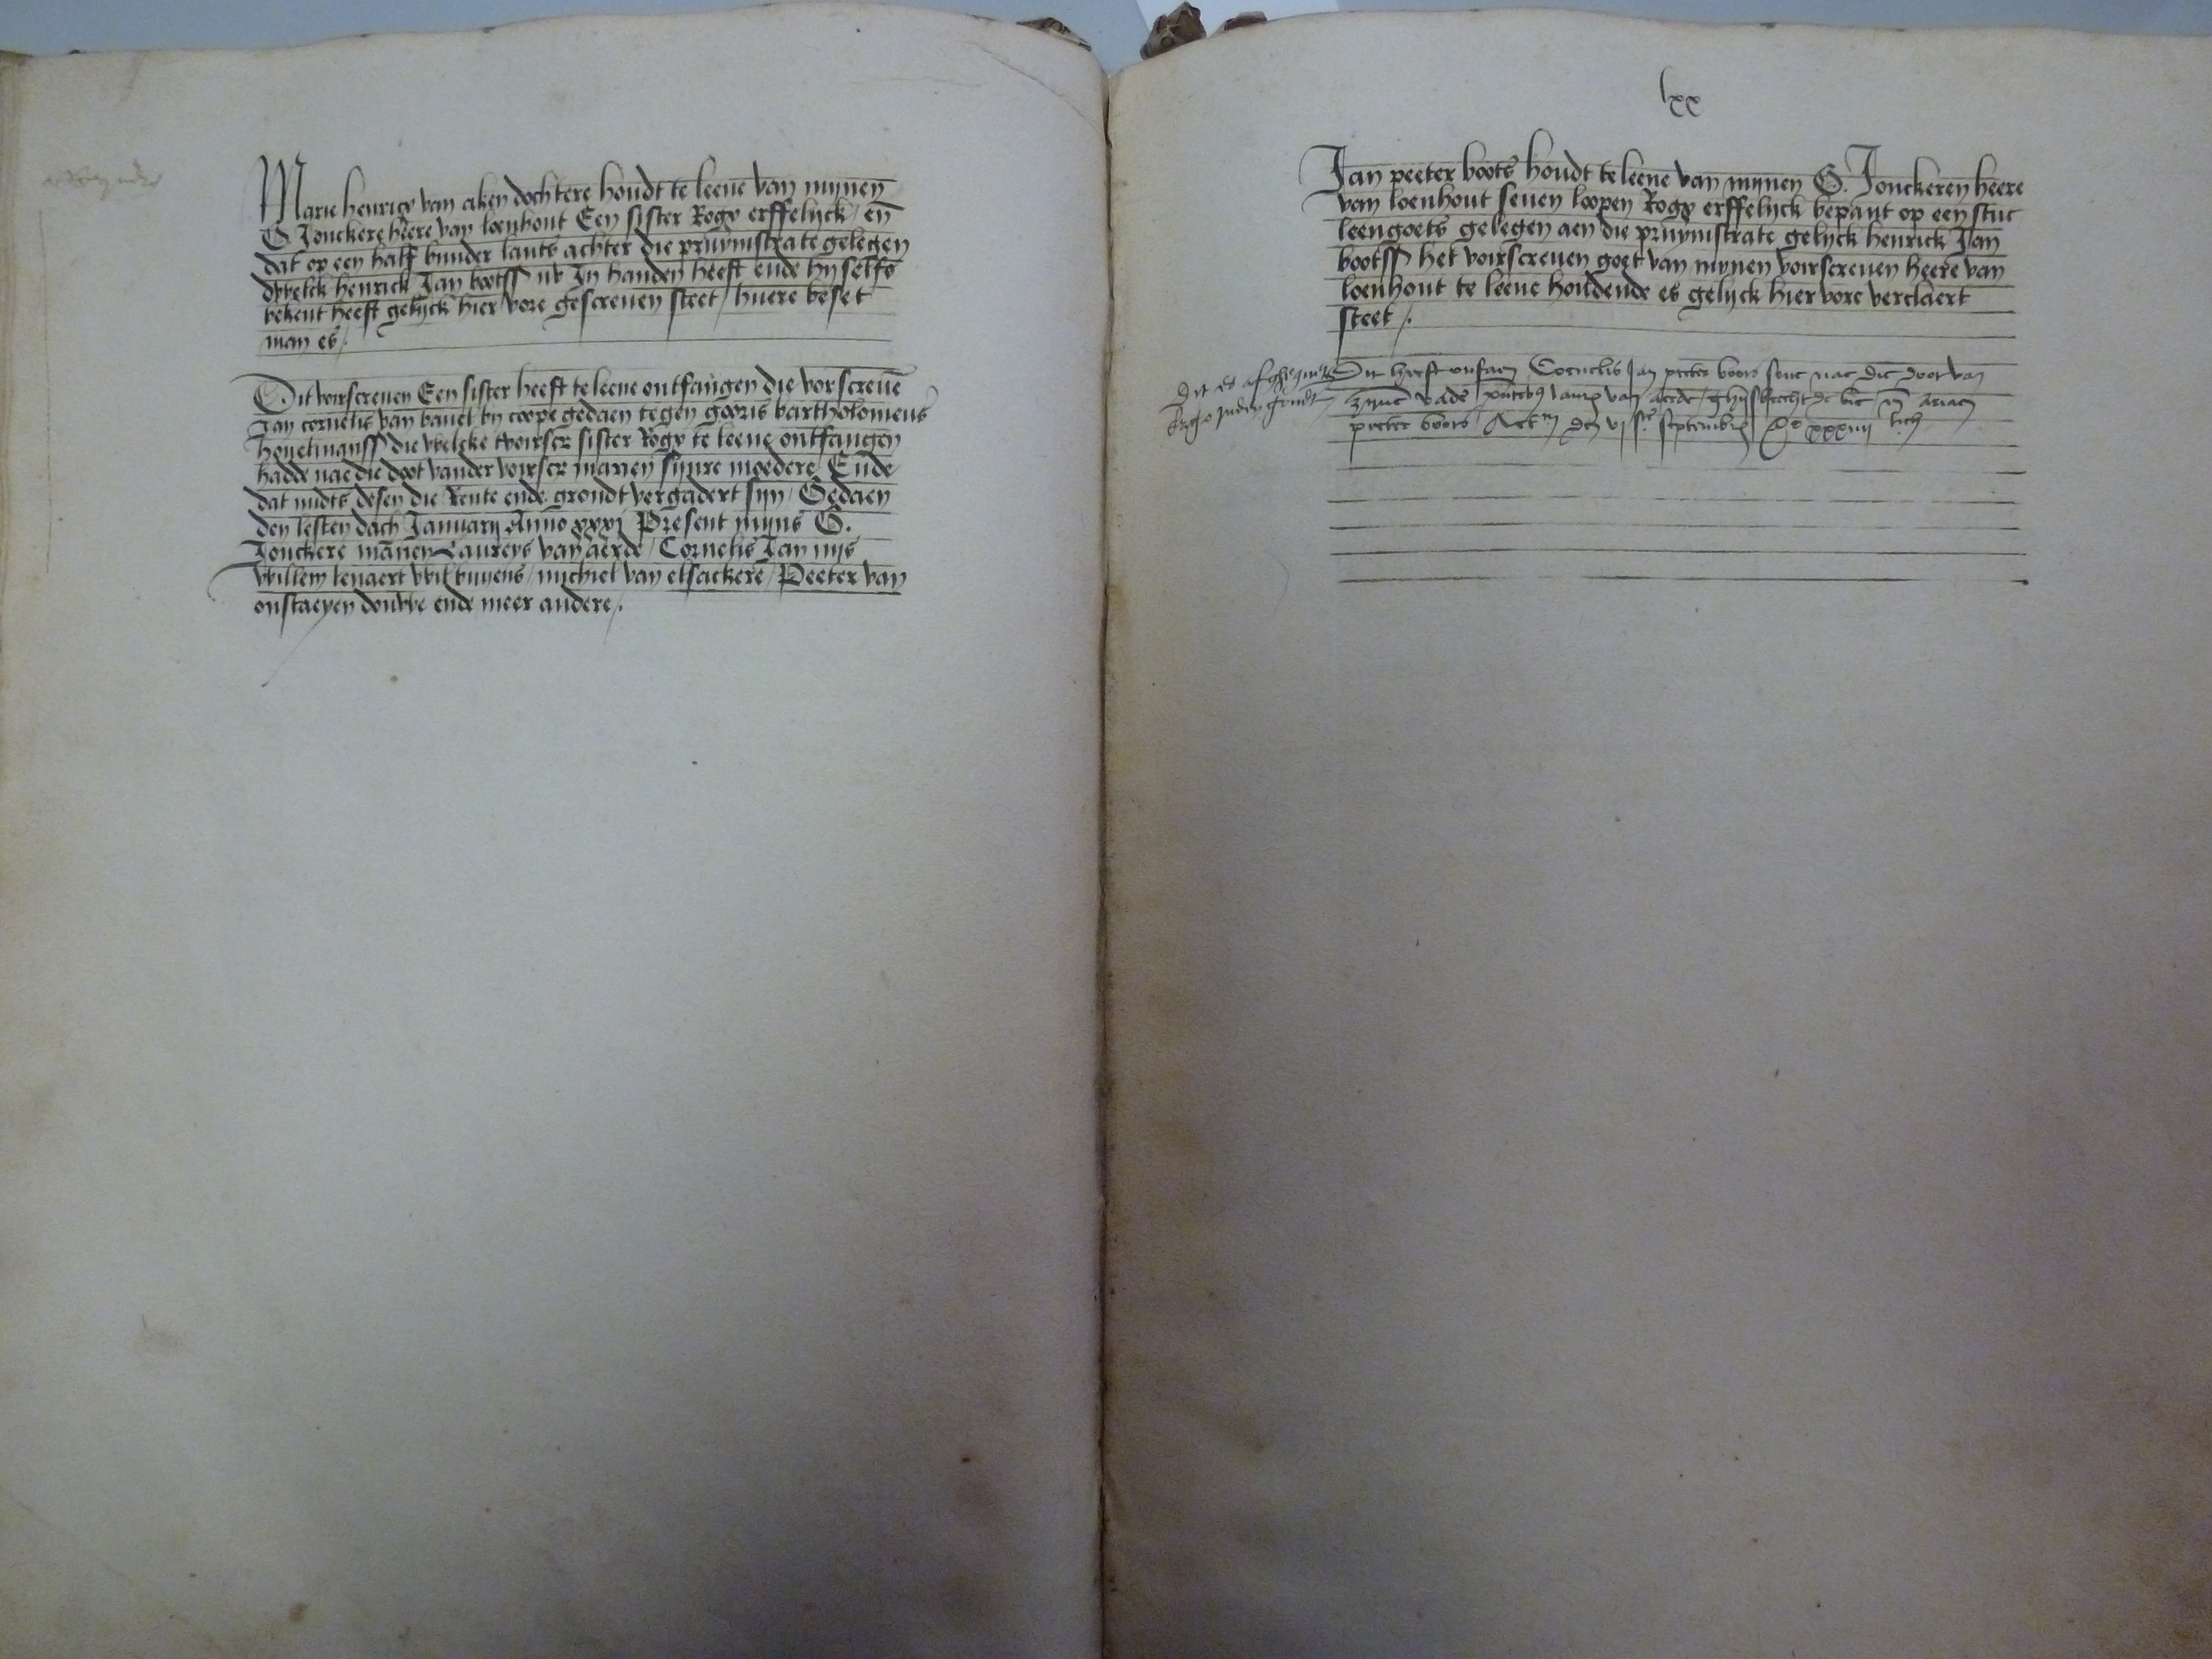 Marie henricx van aken dochtere houdt te leene van mynen
G. Jonckere heere van loenhout Een sister Rogx erffelyck / en
dat op een half bunder lants achter die pruymstrate gelegen
dwelck henrick Jan bootss nv In handen heeft ende hy selfs
bekent heeft gelyck hier vore gescreuen steet / huere beset
man es /.
Dit voirscreuen Een sister heeft te leene ontfangen die vorscreue
Jan cornelis van bauel by coope gedaen tegen gooris bartholomeus
die welcke tvoirscr sister Rogx te leene ontfangen
hadde nae die doot vander voirscr marien synre moedere / Ende
dat midts desen die Rente ende grondt vergadert syn / Gedaen
den lesten dach January Anno xxxj Present myns G.
Jonckere mannen Laureys van aerde / Cornelis Jan nys
Willem lenaert / michiel van elsackere / Peeter van
onstaeyen douwe ende meer andere /.
lxx
Jan peeter boots houdt te leene van mynen G. Jonckeren heere
van loenhout seuen loopen Rogx erffelyck bepant op een stuc
leengoets gelegen aen die pruymstrate gelyck henrick Jan
bootss het voirscreuen goet van mynen voirscreuen heere van
loenhout te leene houdende es gelyck hier vore verclaert
steet /.
Dit es afghequyt
Dit heeft ontfaen Cornelis Jan peeter boots sone nae die doot van
zyne vade van aerde / ghysbrecht de bie en ariaen
peeter boots / Actum den vj ste septembris xxxiiij